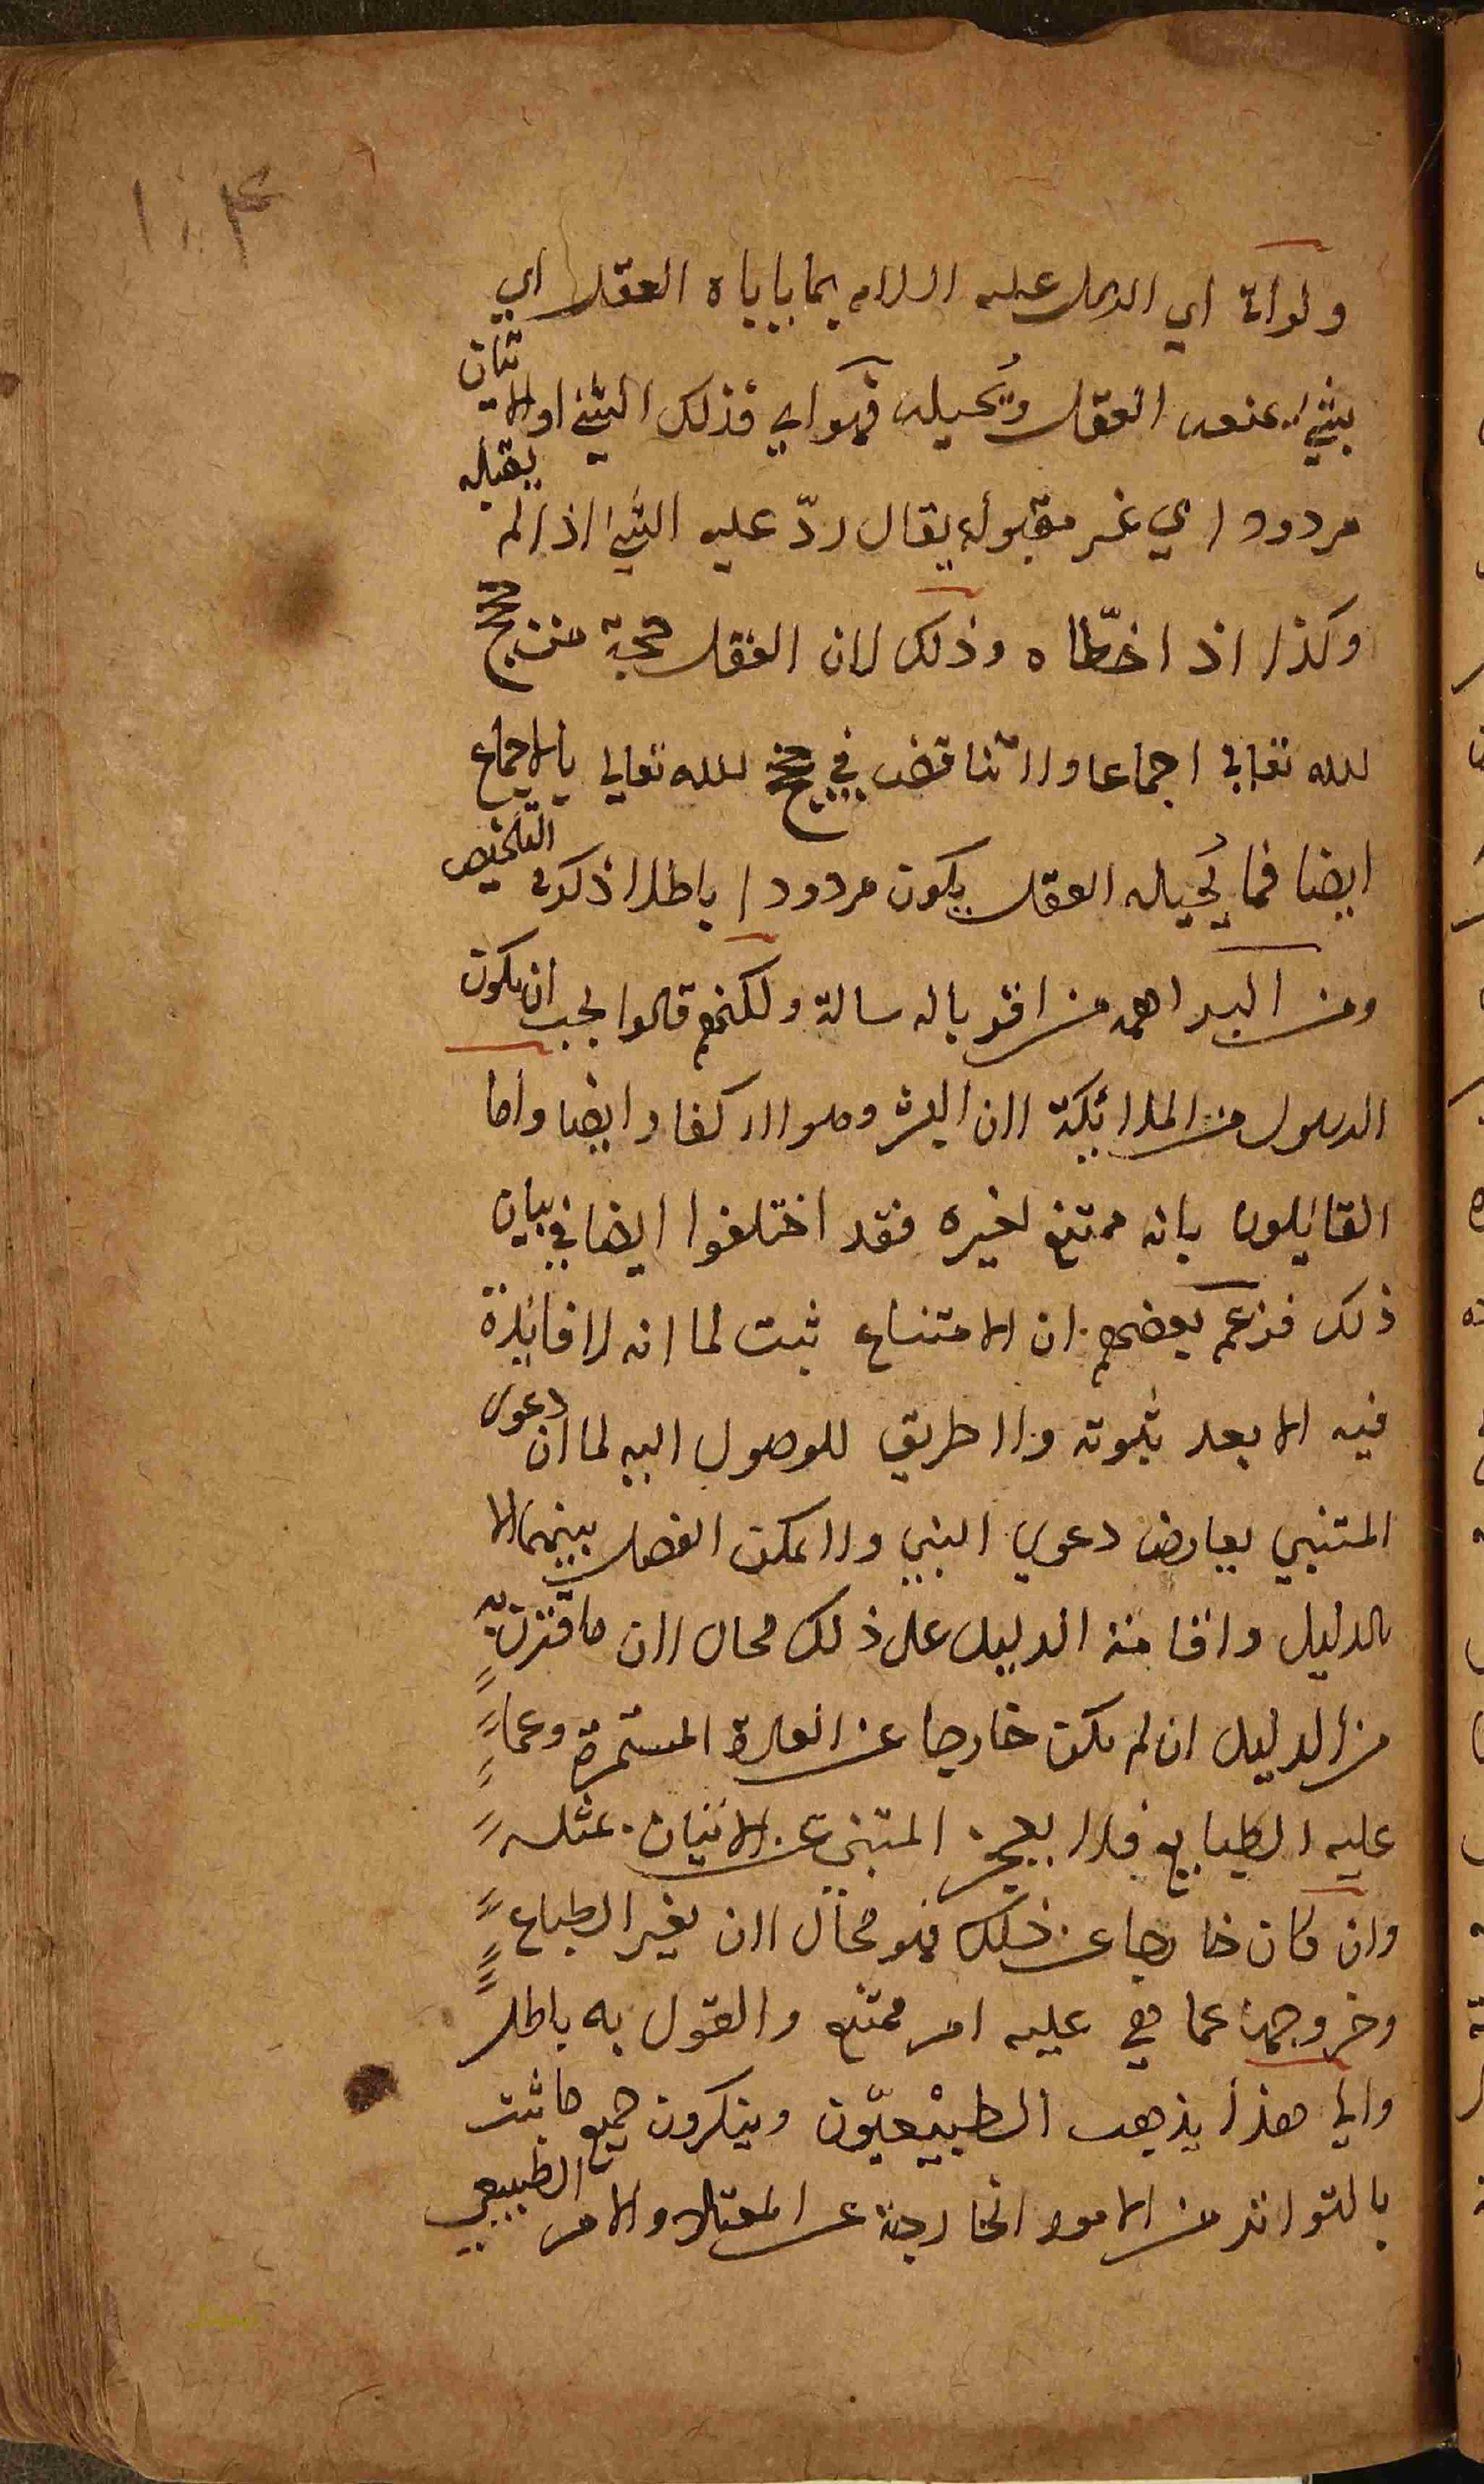 ١٠٤
ولو اتى اي الرسل عليه السلام بما ياباه العقل اي
بشيء يمنعه العقل ويحيله فهو اي فذلك الشيء او الاتيان
مردود اي غير مقبول يقال ردّ عليه الشيء اذا لم يقبله
وكذا اذا خطّاه وذلك لان العقل حجة من حجج
لله تعالى اجماعا ولا تناقض في حجج لله تعالى بالاجماع
ايضا فما يُحيله العقل يكون مردودا باطلا ذكره في التلخيص
ومن البراهمة من اقر بالرسالة ولكنهم قالوا يجب ان يكون
الرسول من الملائكة لان البشر وصوا لا كفار ايضا واما
القائلون بانه ممتنع لغيره فقد اختلفوا ايضا في بيان
ذلك فزعم بعضهم ان الامتناع ثبت لما انه لا فائدة
فيه الا بعد ثبوته ولا طريق للوصول اليه لما ان دعوى
المتنبي يعارض دعوي النبي ولا يمكن الفصل بينهما الا
بالدليل واقامة الدليل على ذلك محال لان ما اقترن به
من الدليل ان لم يكن خارجا عن العادة المستمرة وعما
عليه الطبايع فلا يعجز المتنبي عن الاتيان بمثله
وان كان خارجا عن ذلك فهو محال لان تغير الطباع
وخروجها عما هي عليه امر ممتنع والقول به باطل
والى هذا يذهب الطبيْعيّون وينكرون جميع ما ثبت
بالتواتر من الامور الخارجة عن المعتاد والامر الطبيعي